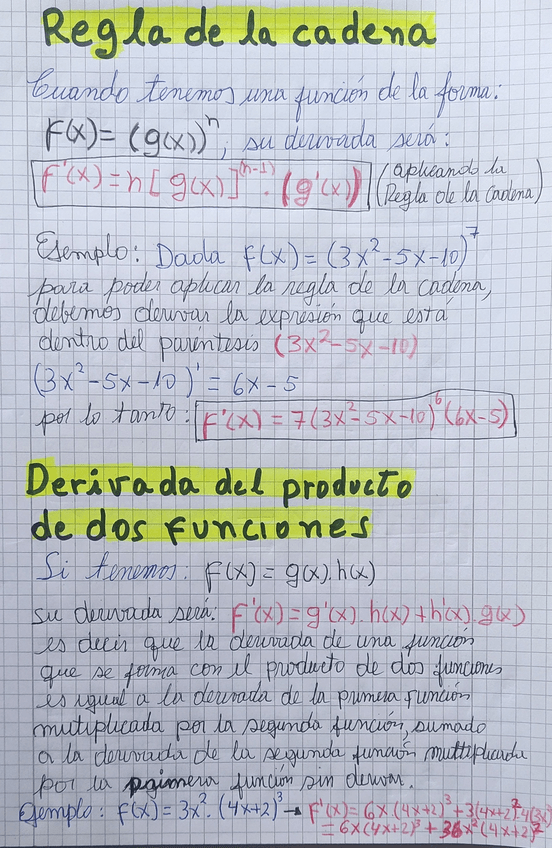 Regla de la cadena
Cuando tenemos una función de la forma:
F(x) = (g(x))^n, su derivada será:
F'(x) = n[g(x)]^(n-1) · (g'(x)) (aplicando la
Regla de la Cadena)
Ejemplo: Dada F(x) = (3x²-5x-10)^7
para poder aplicar la regla de la cadena,
debemos derivar la expresión que está
dentro del paréntesis (3x²-5x-10)
(3x²-5x-10)' = 6x-5
por lo tanto: F'(x) = 7(3x²-5x-10)^6 (6x-5)
Derivada del producto
de dos funciones
Si tenemos: F(x) = g(x).h(x)
su derivada será: F'(x) = g'(x).h(x)+h'(x).g(x)
es decir que la derivada de una función
que se forma con el producto de dos funciones
es igual a la derivada de la primera función
multiplicada por la segunda función, sumado
a la derivada de la segunda función multiplicada
por la primera función sin derivar.
Ejemplo: F(x) = 3x². (4x+2)³ → F'(x) = 6x.(4x+2)³+3(4x+2)².4(3x²)
= 6x(4x+2)³ + 36x²(4x+2)²